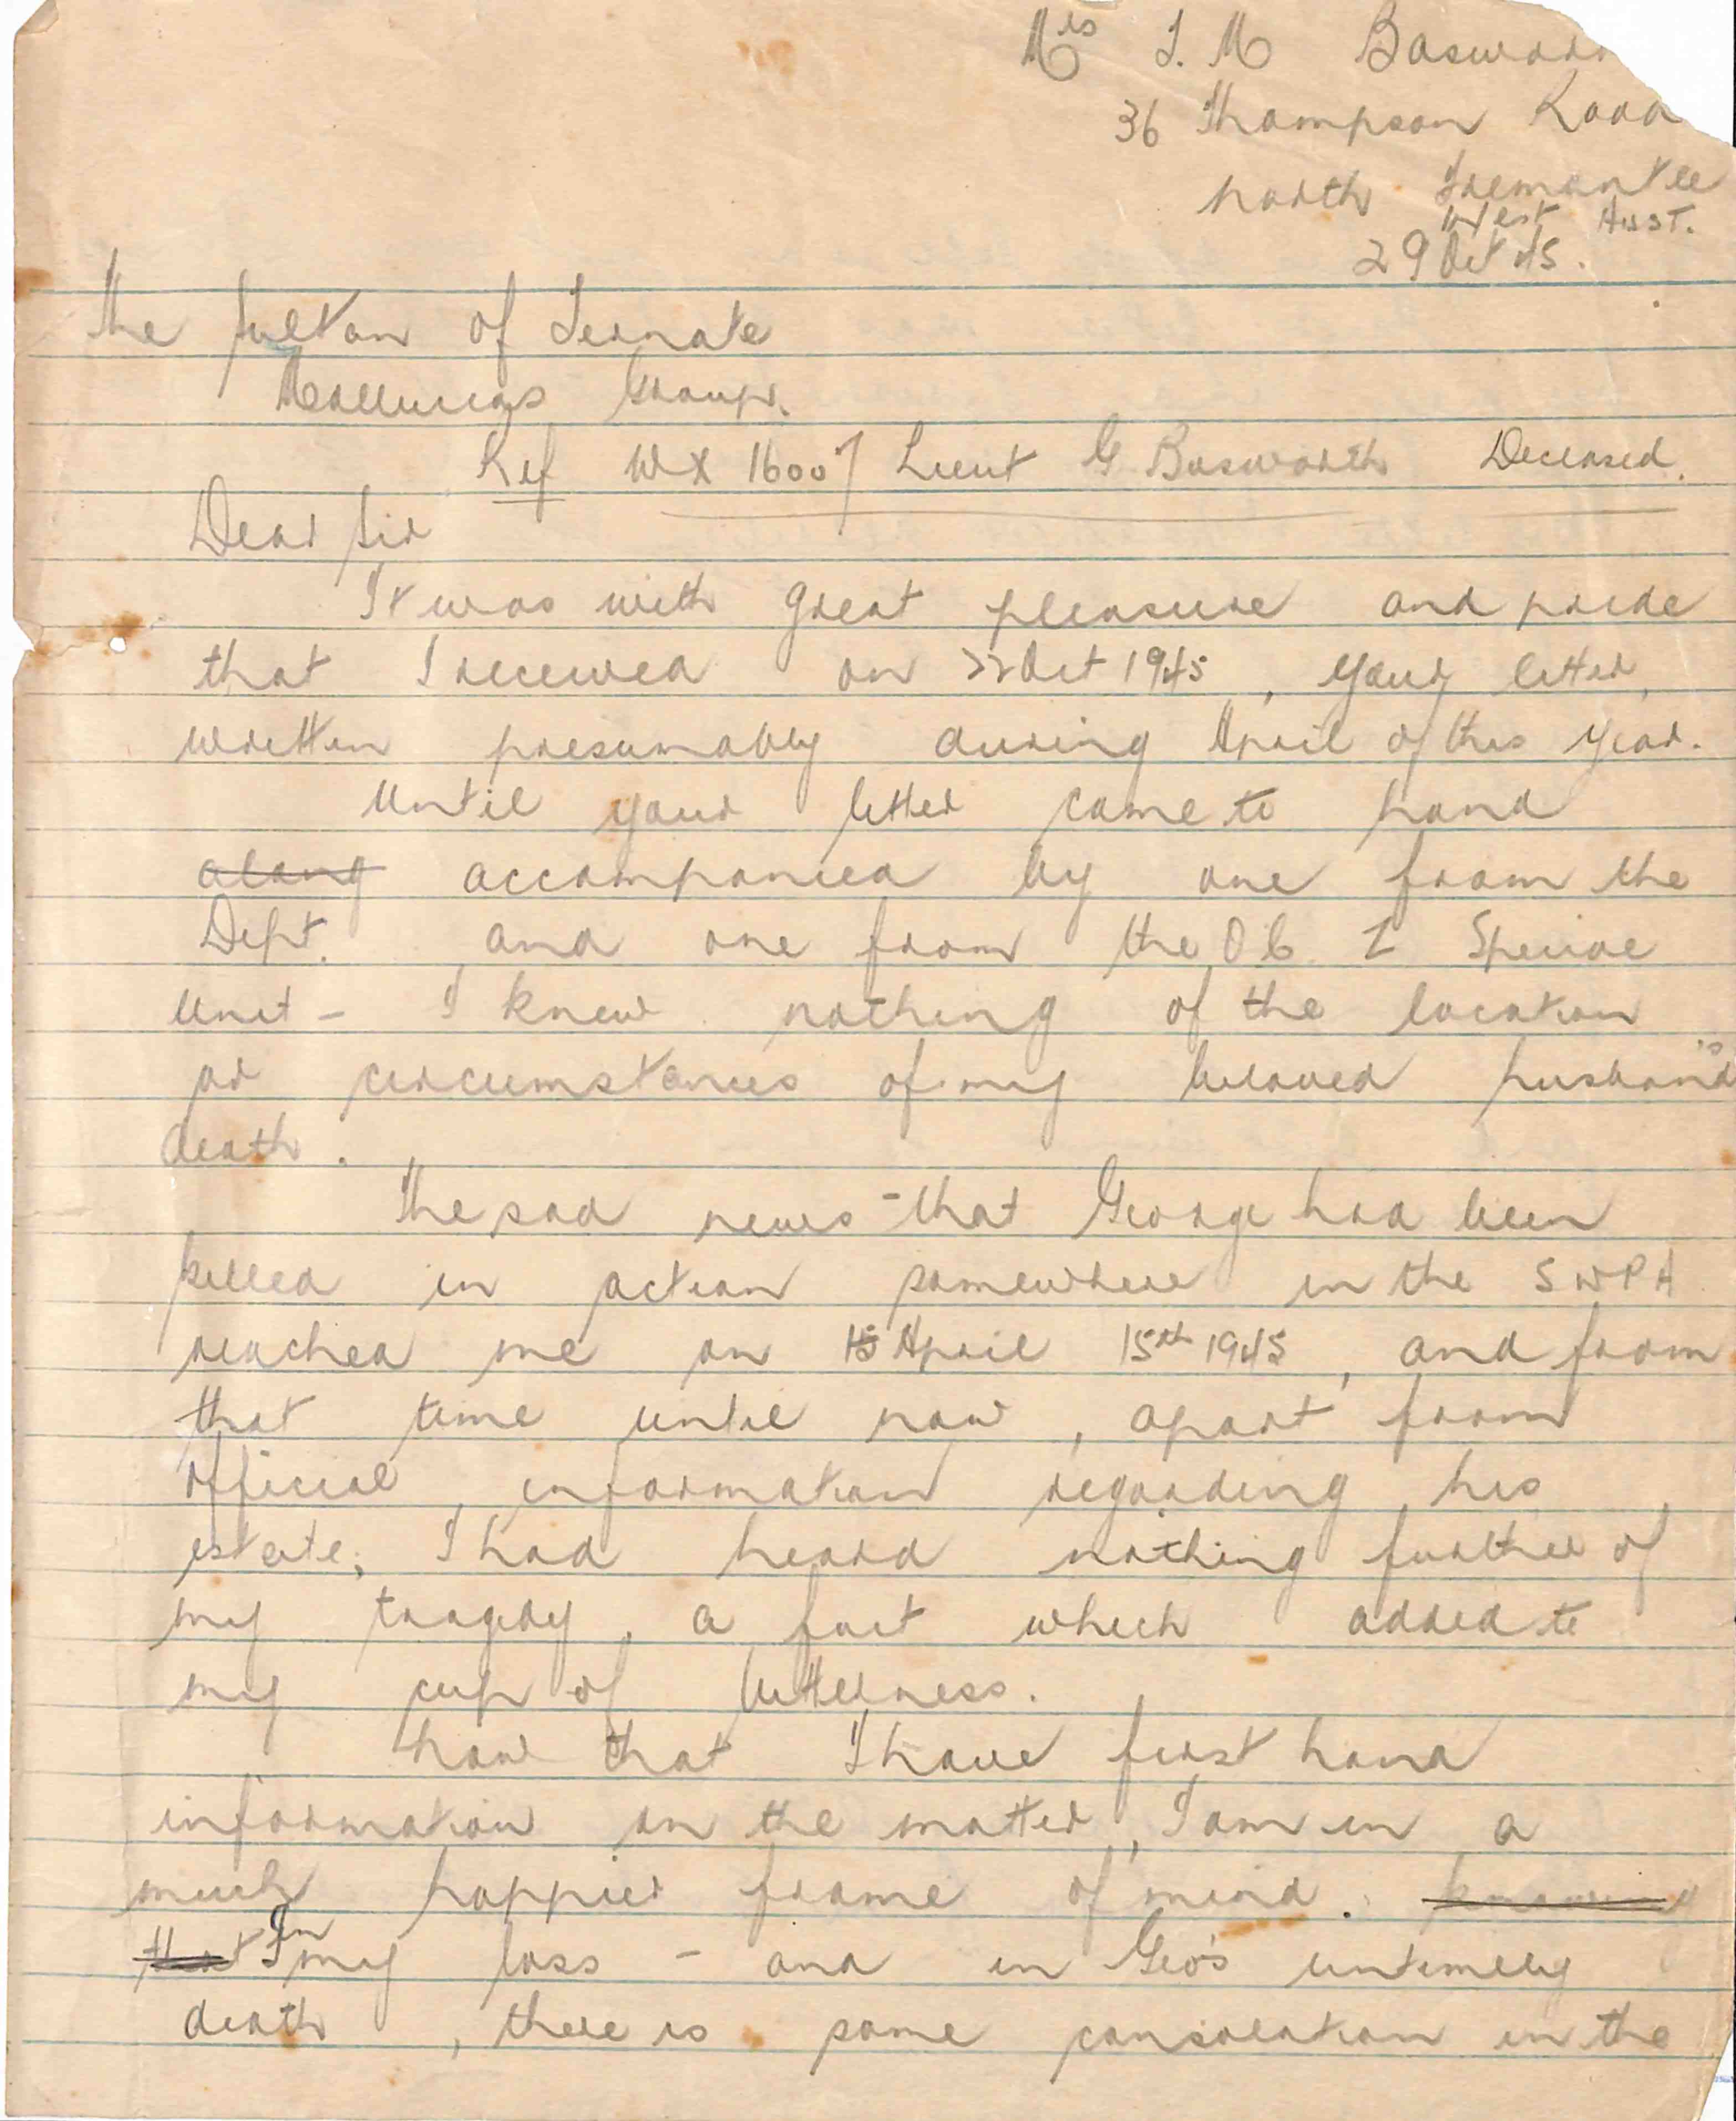 Mrs J. M Boswor
36 Thompson Road
North Fremantle
West Aust.
29 Oct 45.
The Sultan of Ternate
Molluccas Group.
Ref WX 16007 Lieut G Bosworth Deceased.
Dear Sir
It was with great pleasure and pride
that I received on 22 Oct 1945, your letter,
written presumably during April of this year.
Until your letter came to hand
along accompanied by one from the
Dept. and one from the O.C. Z Special
Unit - I knew nothing of the location
or circumstances of my beloved husband's
death.
The sad news - that George had been
killed in action somewhere in the SWPA
reached me on 15 April 15th 1945, and from
that time until now, apart from
official information regarding his
estate, I had heard nothing further of
my tragedy, a fact which added to
my cup of bitterness.
Now that I have first hand
information on the matter, I am in a
much happier frame of mind. knowing
that In my loss - and in Geo's untimely
death, there is some consolation in the